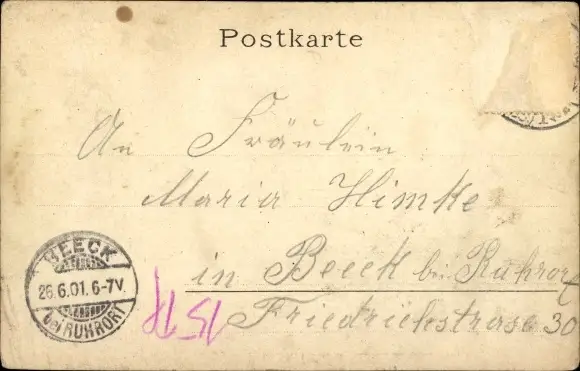 Postkarte
An Fräulein
Maria Himke
in Beeck bei Ruhrort
Friedrichstrase 30
BEECK
26.6.01.6-7V.
bei RUHRORT